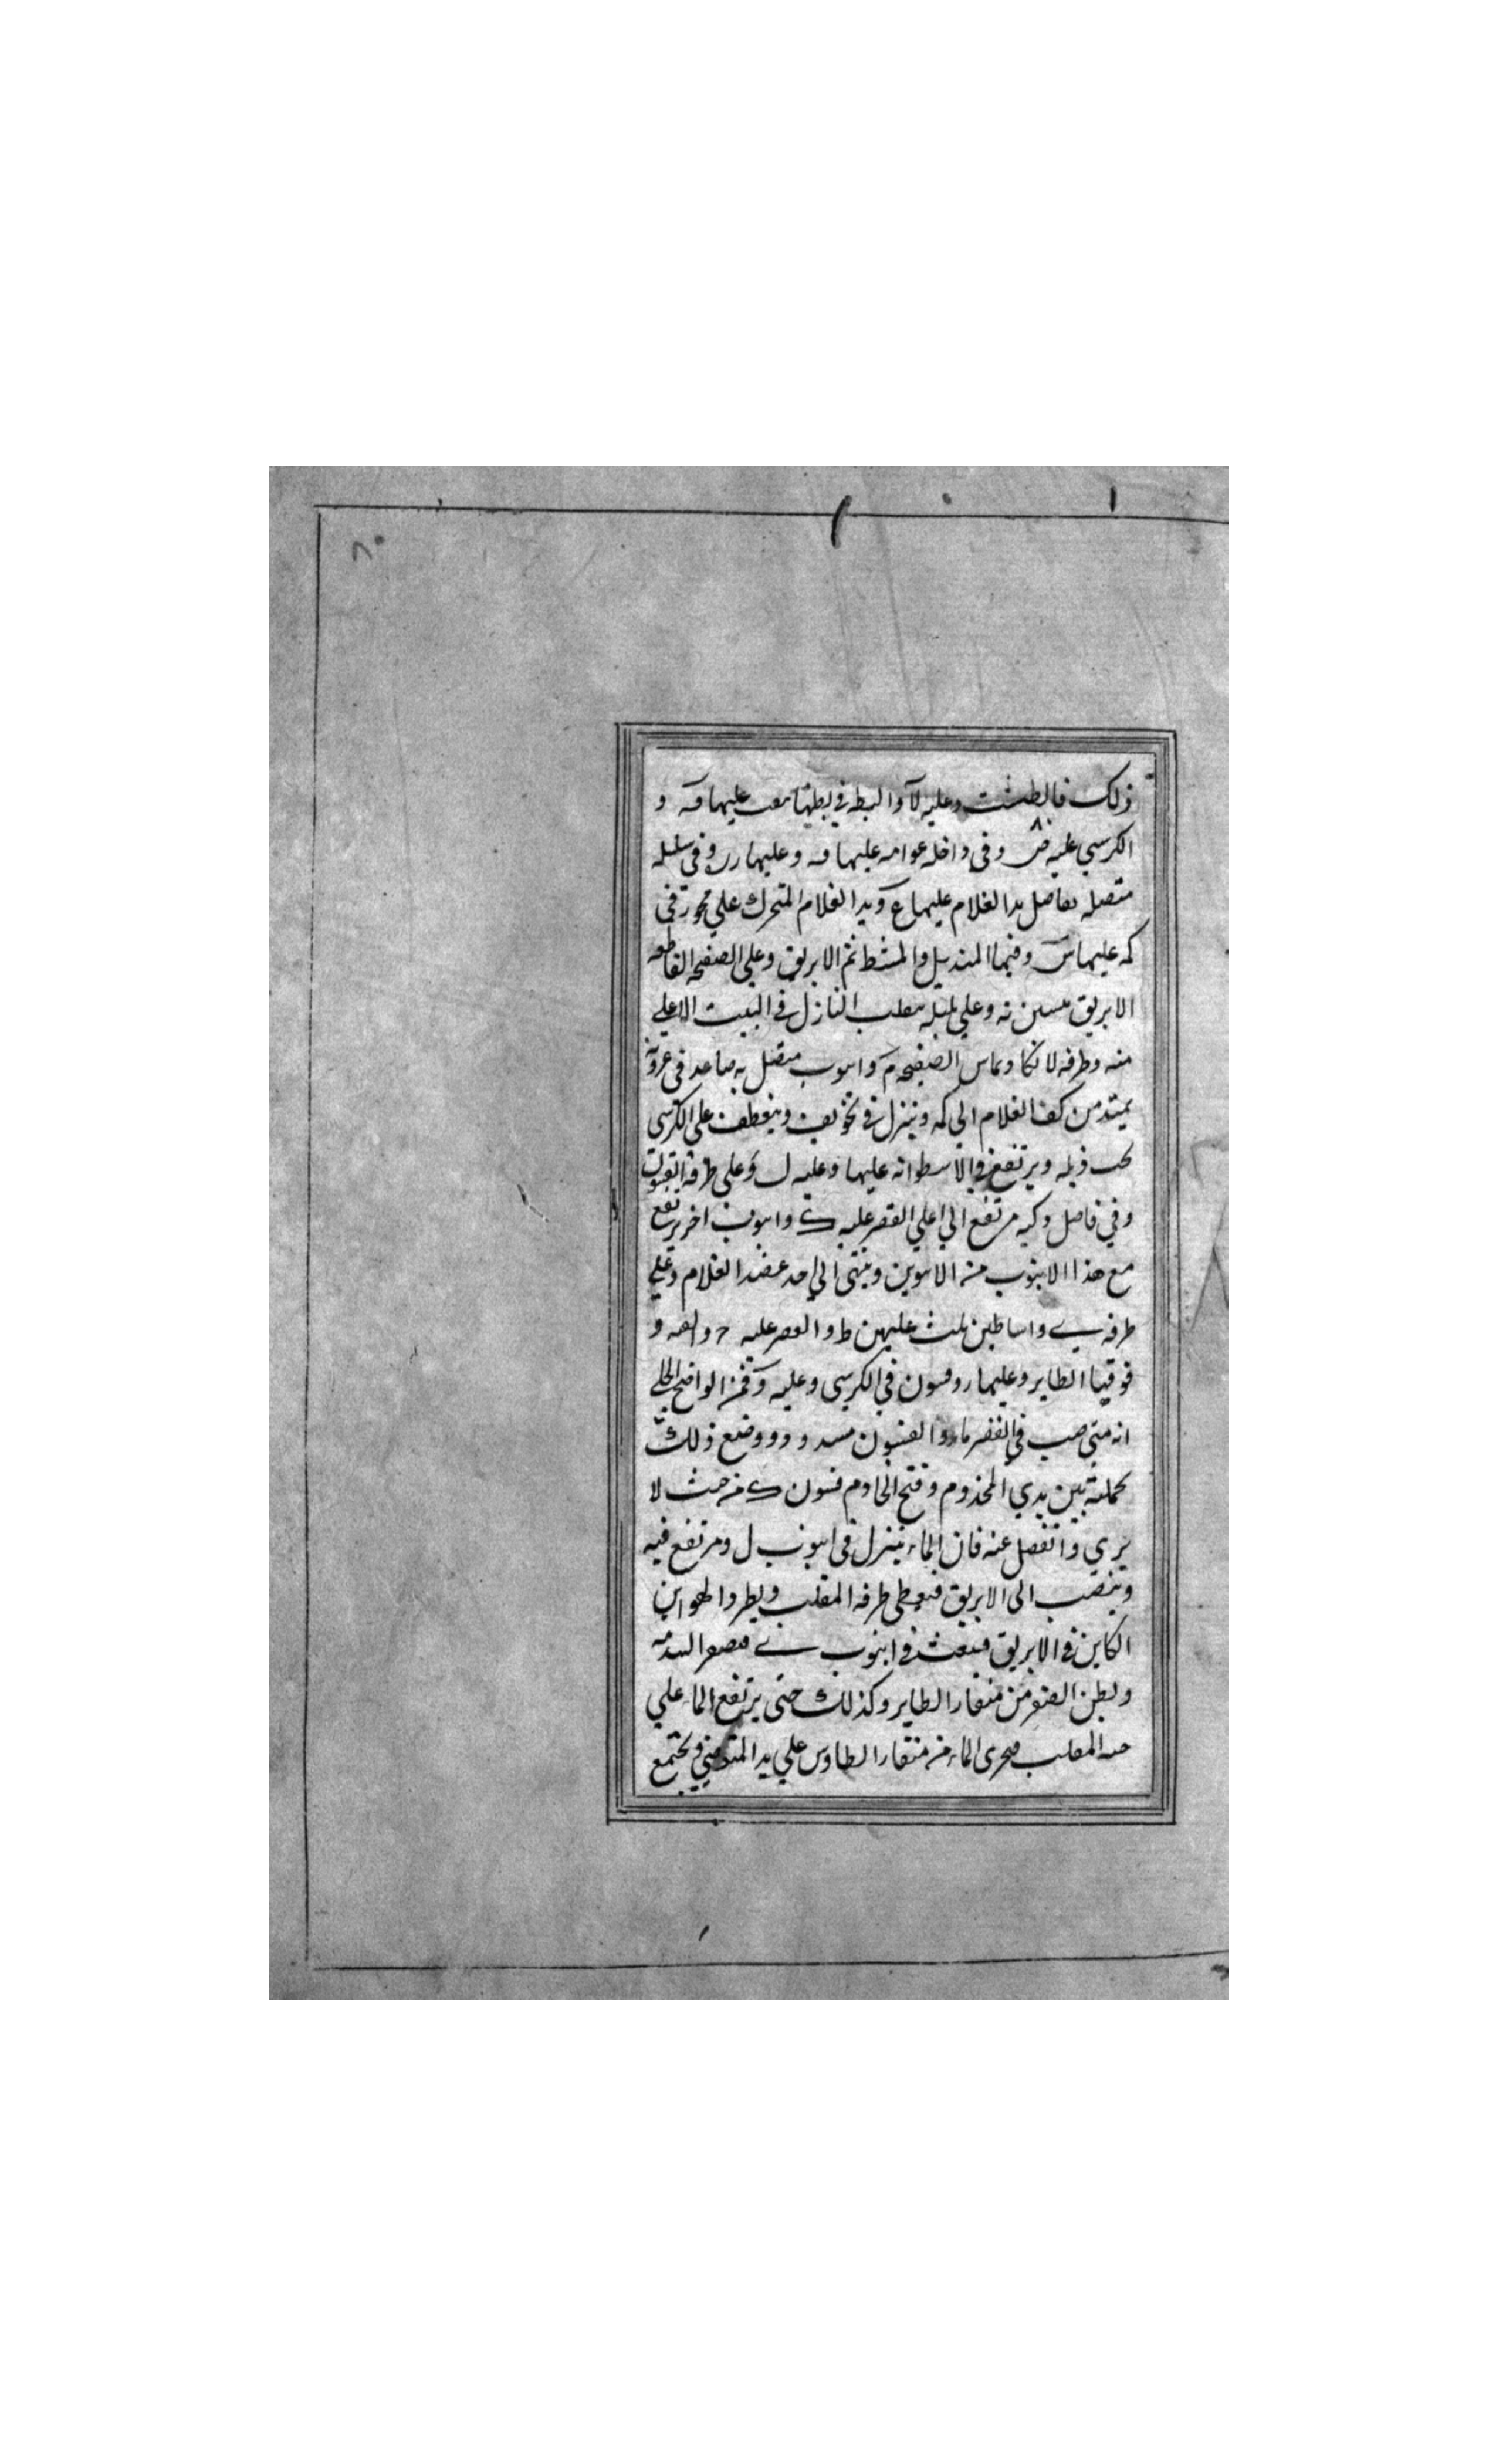 ذلك فالطشت وعليه لآ والبطه في بطنها ثقب عليها فه و
الكرسي عليه ض وفي داخله عوامه عليها وه وعليها رر وفي سلسله
متصله بفاصل يد الغلام عليها ع ويد الغلام المتحرك علي محور في
كمه عليها س وفيها المنديل والمشط ثم الابريق وعلي الصفيحه القاطعه
الابريق عليه مقلب النازل في البيت الاعلي
منه وطرفه لا نكا وماس الصفيحه م وانبوب متصل به صاعد في عروته
يمتد من كف الغلام الي كمه وينزل في تجويف وينعطف علي الكرسي
تحت ذيله ويرتفع في الاسطوانه عليها وعليه ل وعلي طرفه
وفي فاصل وكيه مرتفع الي اعلي القصر عليه ك وانبوب اخر يرتفع
مع هذا الانبوب من الاسوين وينتهى الي احد عضد الغلام وعلي
طرفه ي واساطين ثلث عليهن ط والقصر عليه ح والقبه و
فوقها الطاير وعليها ر وفسون في الكرسي وعليه و فمن الواضح الجلي
انه متي صب في القصر ماء والفسون مسدود ووضع ذلك
بجملته بين يدي المخدوم وفتح الخادم فسون ك من حيث لا
يري وانفصل عنه فان الماء ينزل في انبوب ل ومرتفع فيه
وينصب الى الابريق فيعطى طرفه المقلب ويطرد الهوا من
الكاين في الابريق فينبعث في انبوب ي فيصفر البندقه
ويظن الصفير من منقار الطاير وكذلك حتى يرتفع الماء علي
حنيه المقلب فيجرى الماء من منقار الطاوس علي يد المتوضي ويجتمع